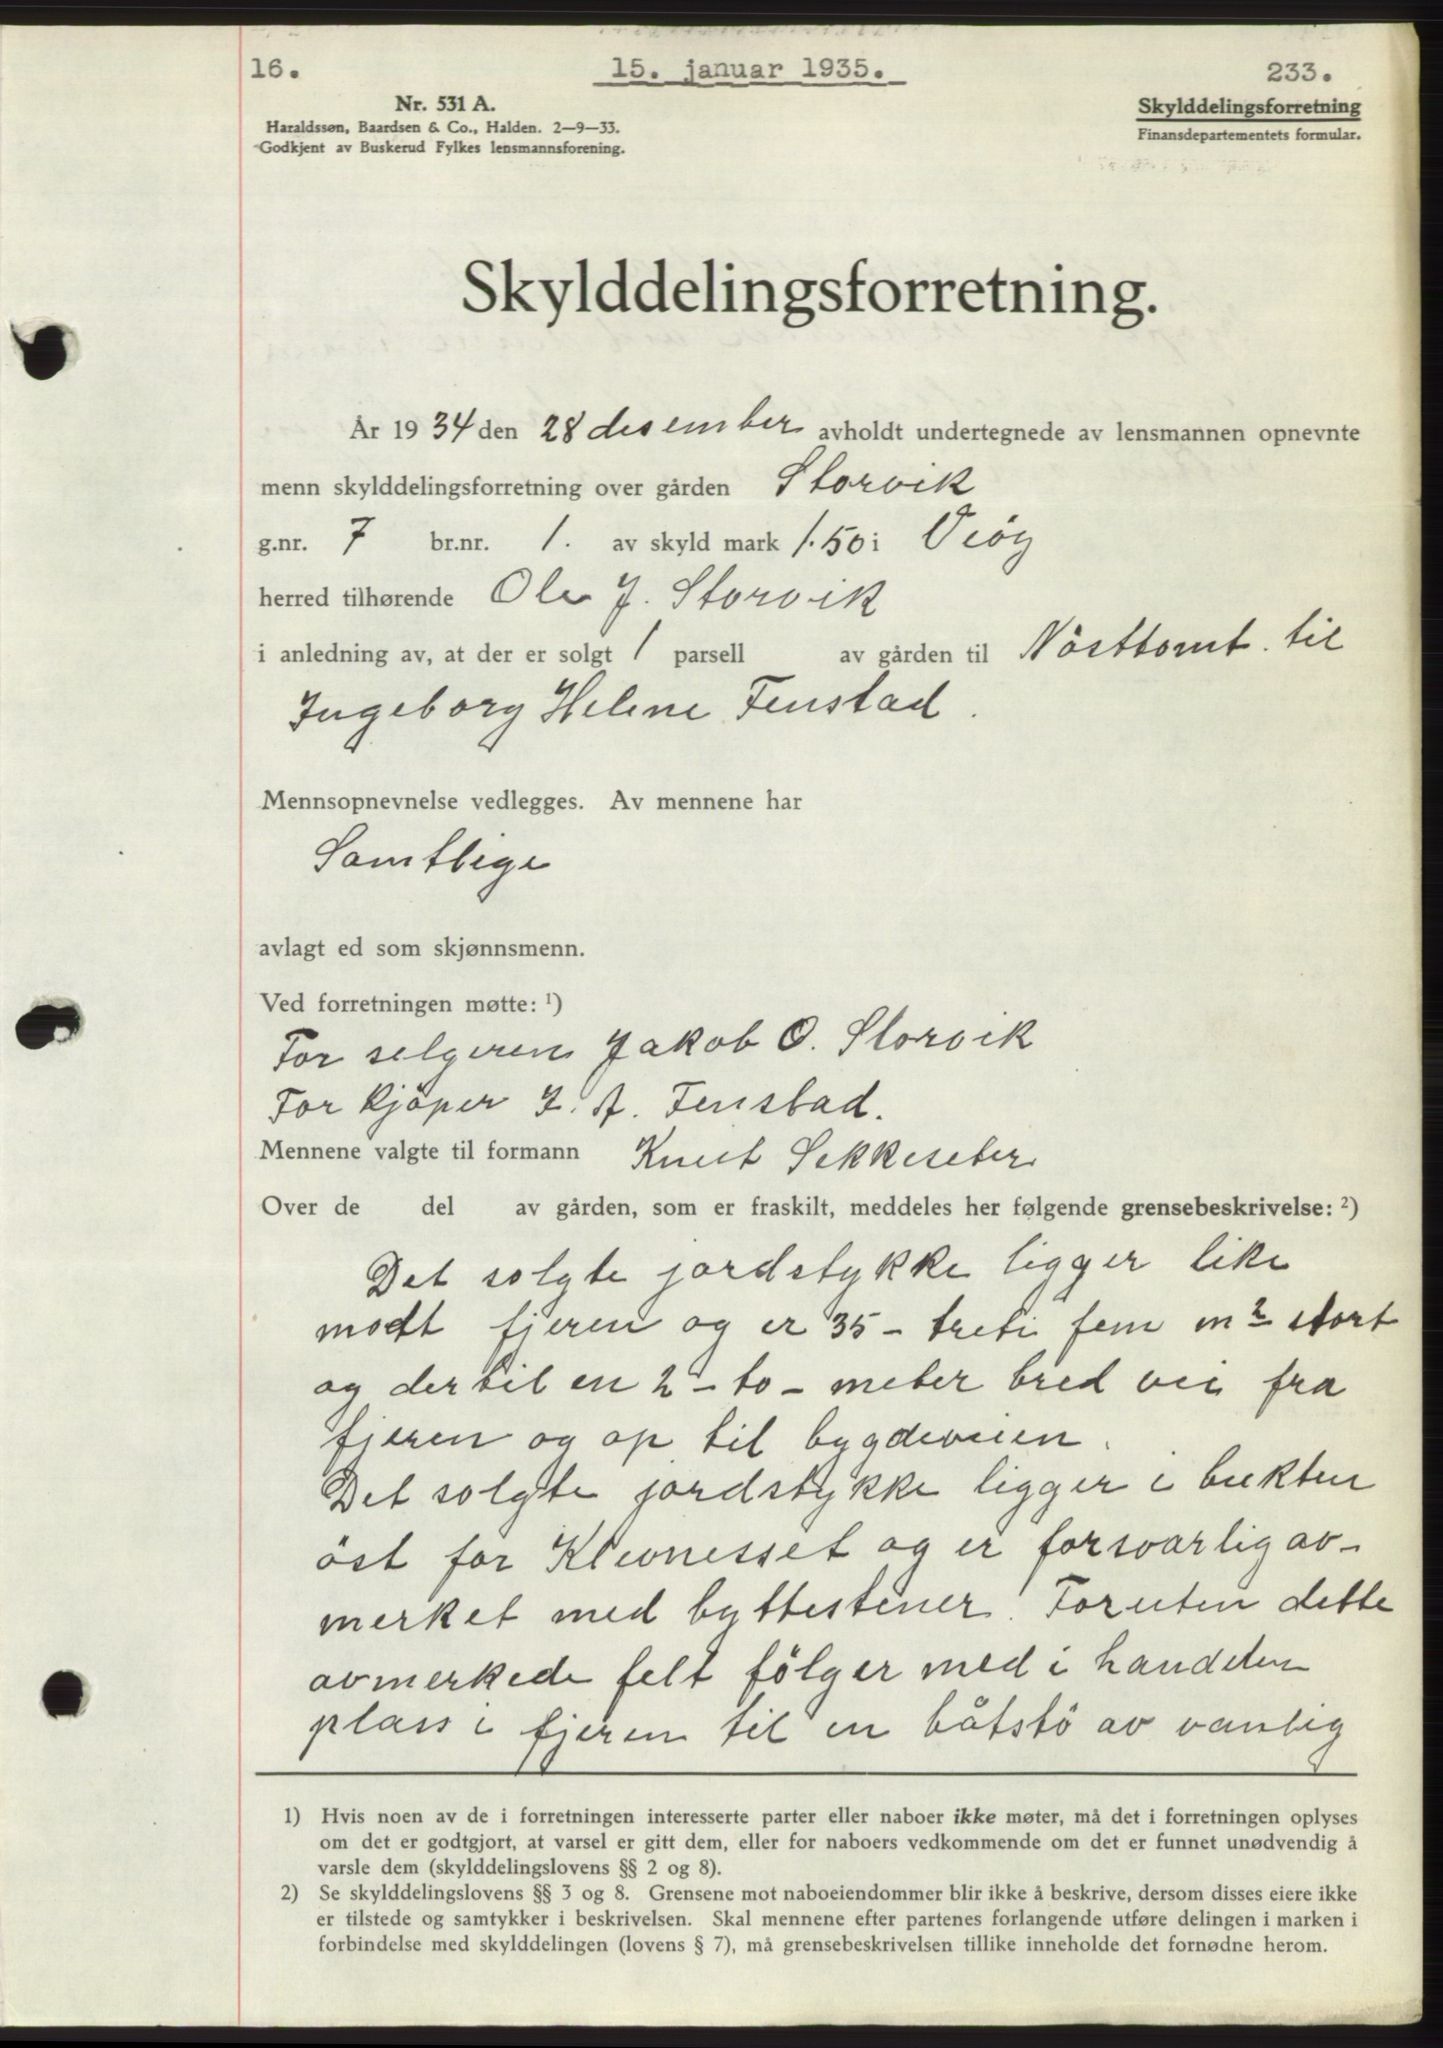 16.
15. januar 1935.
233.
Nr. 531 A.
Haraldssøn, Baardsen & Co., Halden. 2—9—33.
Godkjent av Buskerud Fylkes lensmannsforening.
Skylddelingsforretning
Finansdepartementets formular.
Skylddelingsforretning.
År 1934 den 28 desember avholdt undertegnede av lensmannen opnevnte
menn skylddelingsforretning over gården Storvik
g.nr. 7 br.nr. 1. av skyld mark 1.50 i Veöy
herred tilhørende Ole J. Storvik
i anledning av, at der er solgt 1 parsell av gården til Nösttomt. til
Ingeborg Helene Fenstad.
Mennsopnevnelse vedlegges. Av mennene har
Samtlige
avlagt ed som skjønnsmenn.
Ved forretningen møtte: ¹)
For selgeren Jakob O. Storvik
For kjöper I. A. Fenstad.
Mennene valgte til formann Knut Sekkeseter
Over de del av gården, som er fraskilt, meddeles her følgende grensebeskrivelse: ²)
Det solgte jordstykke ligger like
modt fjeren og er 35 - treti fem m² stort
og dertil en 2 - to - meter bred vei fra
fjeren og op til bygdeveien.
Det solgte jordstykke ligger i bukten
öst for Klevnesset og er forsvarlig av-
merket med byttestener. Foruten dette
avmerkede felt fölger med i handelen
plass i fjeren til en båtstö av vanlig
1) Hvis noen av de i forretningen interesserte parter eller naboer ikke møter, må det i forretningen oplyses
om det er godtgjort, at varsel er gitt dem, eller for naboers vedkommende om det er funnet unødvendig å
varsle dem (skylddelingslovens §§ 2 og 8).
2) Se skylddelingslovens §§ 3 og 8. Grensene mot naboeiendommer blir ikke å beskrive, dersom disses eiere ikke
er tilstede og samtykker i beskrivelsen. Skal mennene efter partenes forlangende utføre delingen i marken i
forbindelse med skylddelingen (lovens § 7), må grensebeskrivelsen tillike inneholde det fornødne herom.